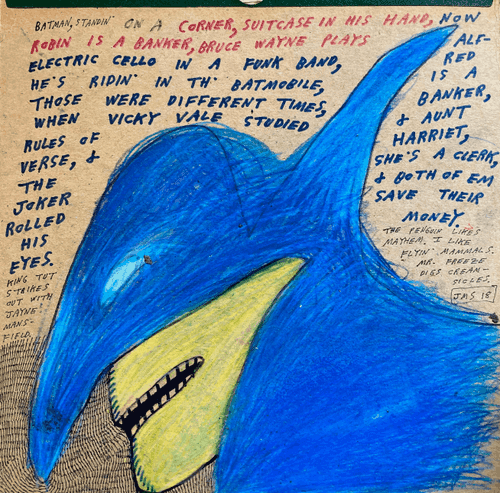 BATMAN, STANDIN' ON A CORNER, SUITCASE IN HIS HAND, NOW
ROBIN IS A BANKER, BRUCE WAYNE PLAYS
ELECTRIC CELLO IN A FUNK BAND,
HE'S RIDIN' IN TH' BATMOBILE,
THOSE WERE DIFFERENT TIMES,
WHEN VICKY VALE STUDIED
RULES OF
VERSE, &
THE
JOKER
ROLLED
HIS
EYES.
ALF-
RED
IS A
BANKER,
& AUNT
HARRIET,
SHE'S A CLERK,
& BOTH OF EM
SAVE THEIR
MONEY.
KING TUT
STRIKES
OUT WITH
JAYNE
MANS-
FIELD.
THE PENGUIN LIKES
MAYHEM. I LIKE
FLYIN' MAMMALS.
MR. FREEZE
DIGS CREAM-
SICLES.
JMS 18